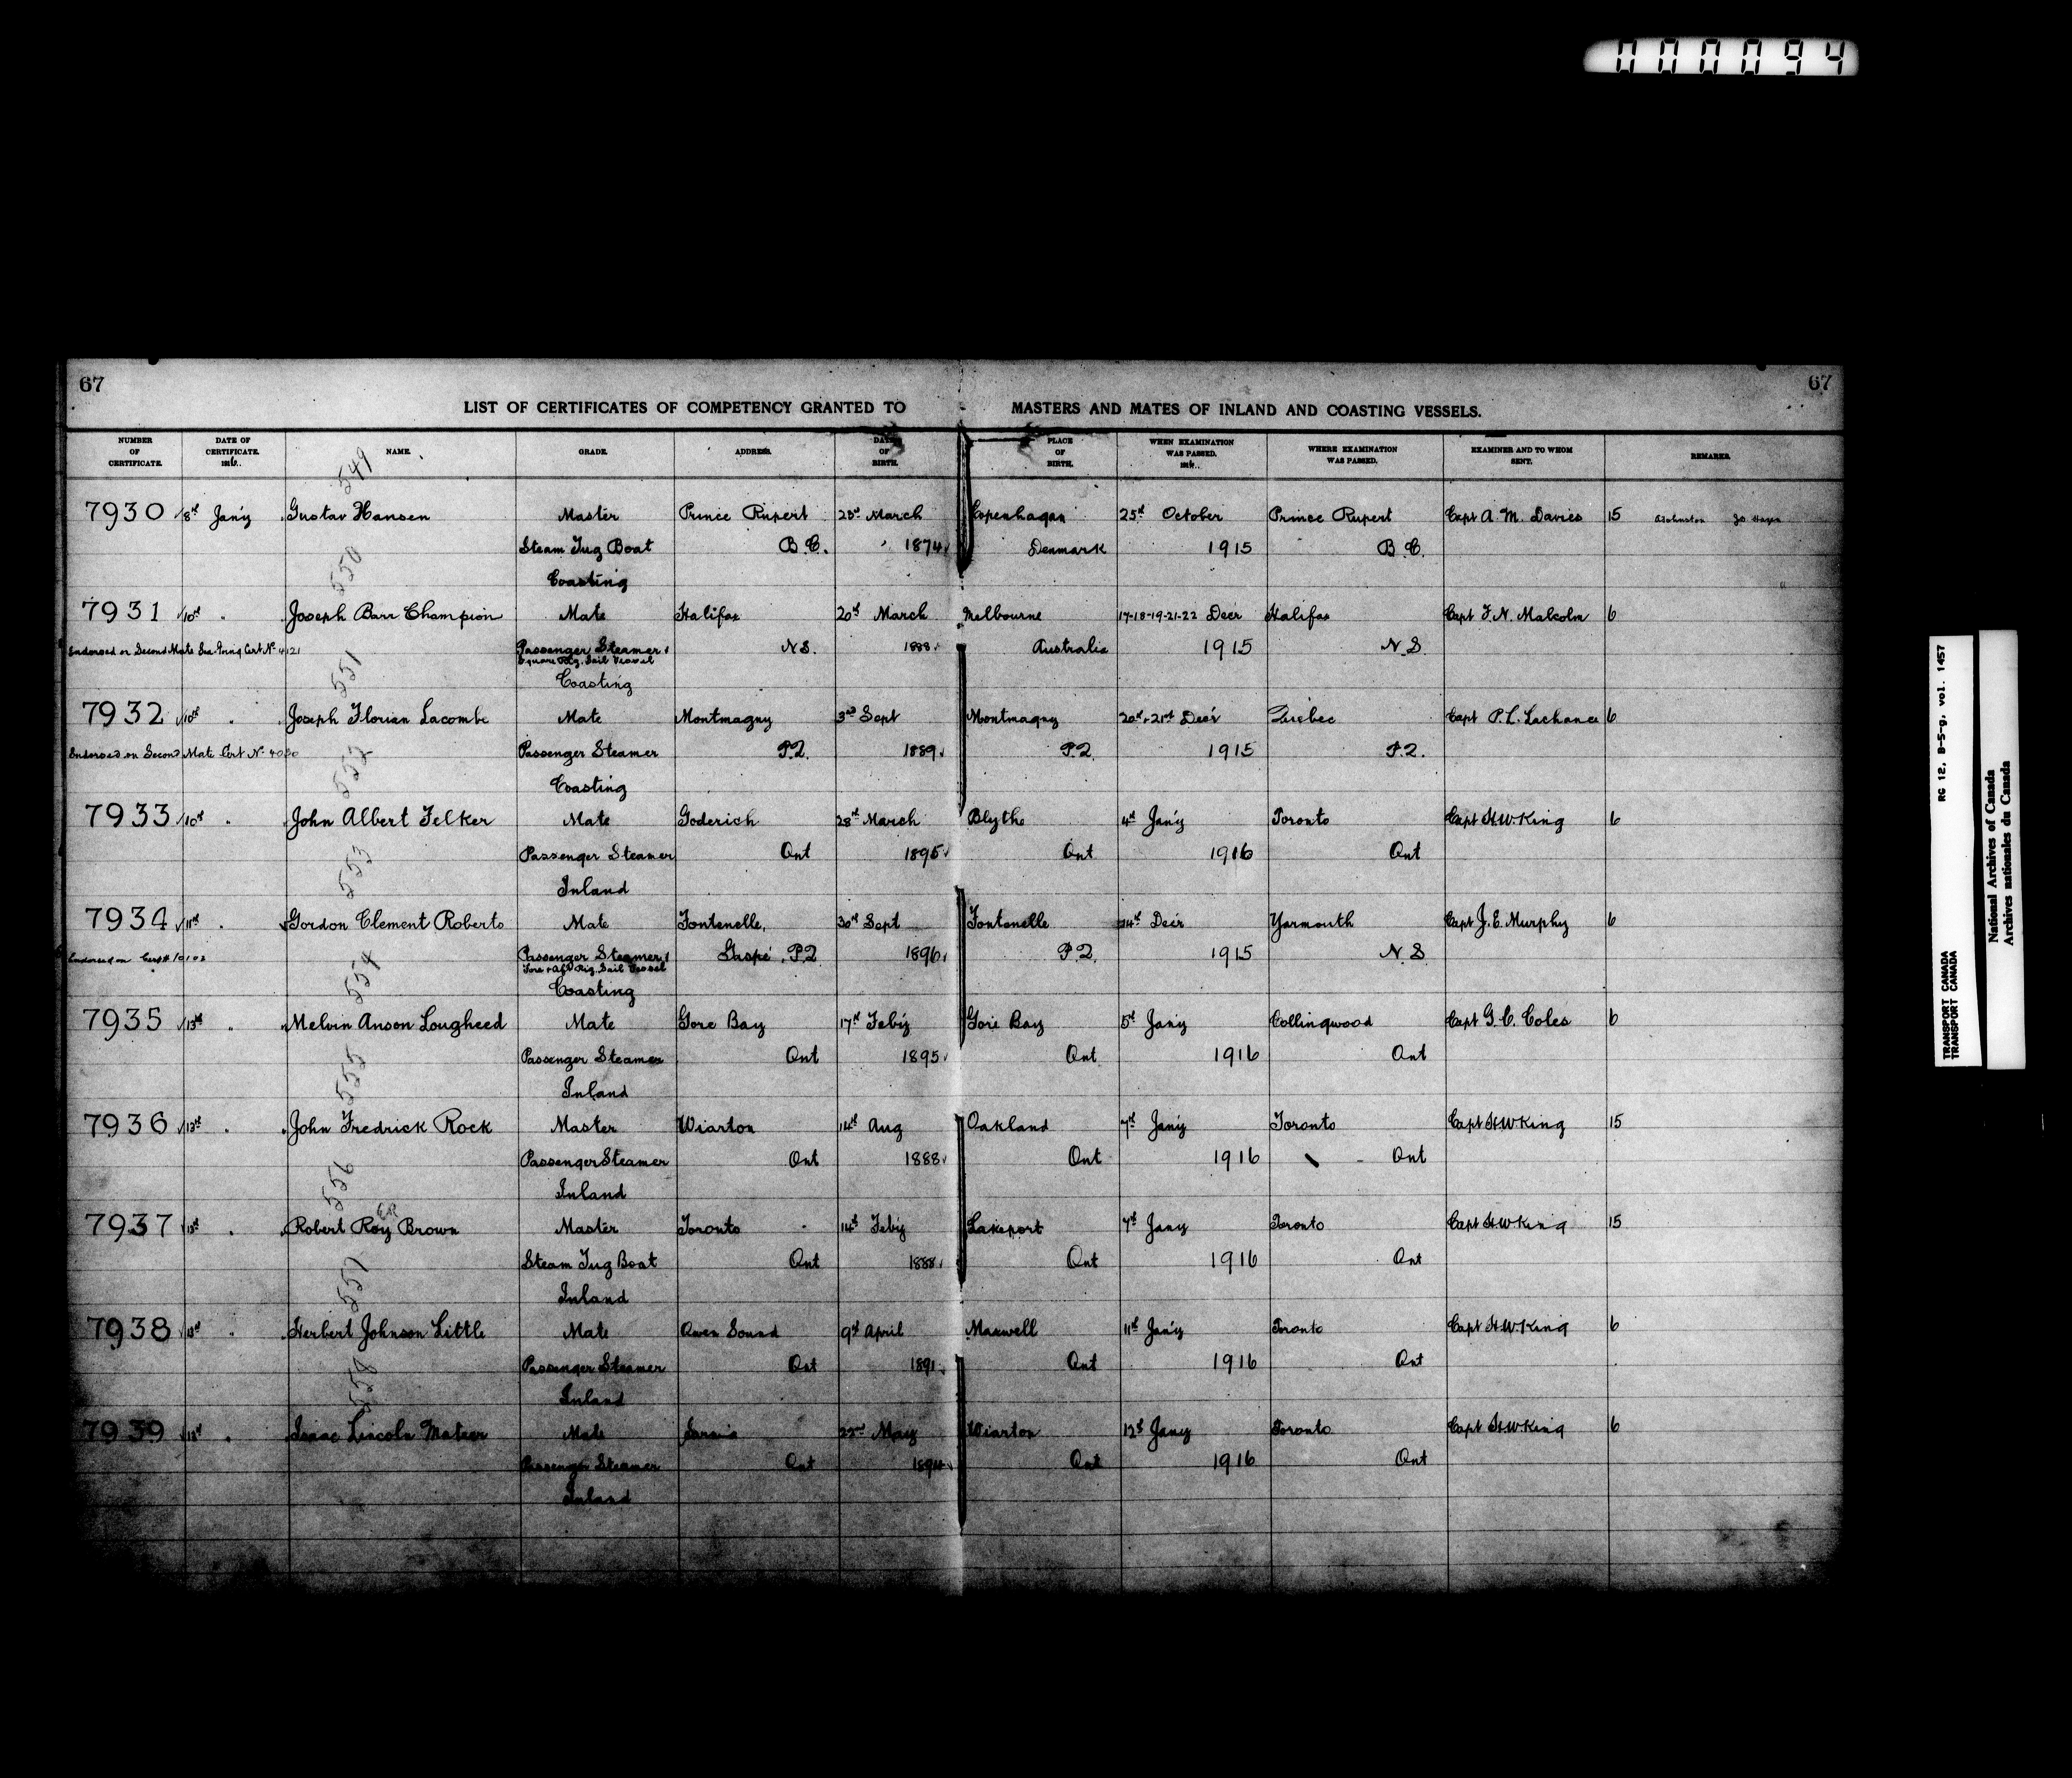 000094
67
67
LIST OF CERTIFICATES OF COMPETENCY GRANTED TO MASTERS AND MATES OF INLAND AND COASTING VESSELS.
NUMBER OF CERTIFICATE. DATE OF CERTIFICATE. NAME. GRADE. ADDRESS. DATE OF BIRTH. PLACE OF BIRTH. WHEN EXAMINATION WAS PASSED. WHERE EXAMINATION WAS PASSED. EXAMINER AND TO WHOM SENT. REMARKS.
549
7930 8th Jan'y Gustav Hansen Master Prince Rupert March Copenhagan 25th October Prince Rupert Capt A. M. Davies 15
Steam Tug Boat B.C. 1874 Denmark 1915 B.C.
550
Coasting
7931 10th " Joseph Barr Champion Mate Halifax 20th March Melbourne 17-18-19-21-22 Decr Halifax Capt F. N. Malcolm 6
Endorsed on Second Mate Sea-Going Cert No 4121 Passenger Steamer & N.S. 1888 Australia 1915 N.S.
Square Rig. Sail Vessel
551
Coasting
7932 10th " Joseph Florian Lacombe Mate Montmagny 3rd Sept Montmagny 20th & 21st Dec'r Quebec Capt P. L. Lachance 6
Endorsed on Second Mate Cert No Passenger Steamer P.Q. 1889 P.Q. 1915 P.Q.
552
Coasting
7933 10th " John Albert Felker Mate Goderich 28th March Blythe 4th Jan'y Toronto Capt H.W. King 6
Passenger Steamer Ont 1895 Ont 1916 Ont
553
Inland
7934 11th " Gordon Clement Roberts Mate Fontenelle, 30th Sept Fontenelle 14th Decr Yarmouth Capt J. E. Murphy 6
Endorsed on Passenger Steamer & Gaspé, P.Q. 1896 P.Q. 1915 N.S.
Fore & Aft Rig. Sail Vessel
554
Coasting
7935 13th " Melvin Anson Lougheed Mate Gore Bay 17th Feb'y Gore Bay 5th Jan'y Collingwood Capt G. C. Coles 6
Passenger Steamer Ont 1895 Ont 1916 Ont
555
Inland
7936 13th " John Fredrick Rock Master Wiarton 14th Aug Oakland 7th Jan'y Toronto Capt H.W. King 15
Passenger Steamer Ont 1888 Ont 1916 Ont
556
Inland
ER
7937 13th " Robert Roy Brown Master Toronto 14th Feb'y Lakeport 7th Jany Toronto Capt H.W. King 15
Steam Tug Boat Ont 1888 Ont 1916 Ont
557
Inland
7938 13th " Herbert Johnson Little Mate Owen Sound 9th April Maxwell 11th Jan'y Toronto Capt H.W. King 6
Passenger Steamer Ont 1891 Ont 1916 Ont
558
Inland
7939 13th " Isaac Lincoln Mate Sarnia 22nd May Wiarton 12th Jany Toronto Capt H.W. King 6
Passenger Steamer Ont Ont 1916 Ont
Inland
TRANSPORT CANADA RG 12, B-5-g, vol. 1457
TRANSPORT CANADA
National Archives of Canada
Archives nationales du Canada